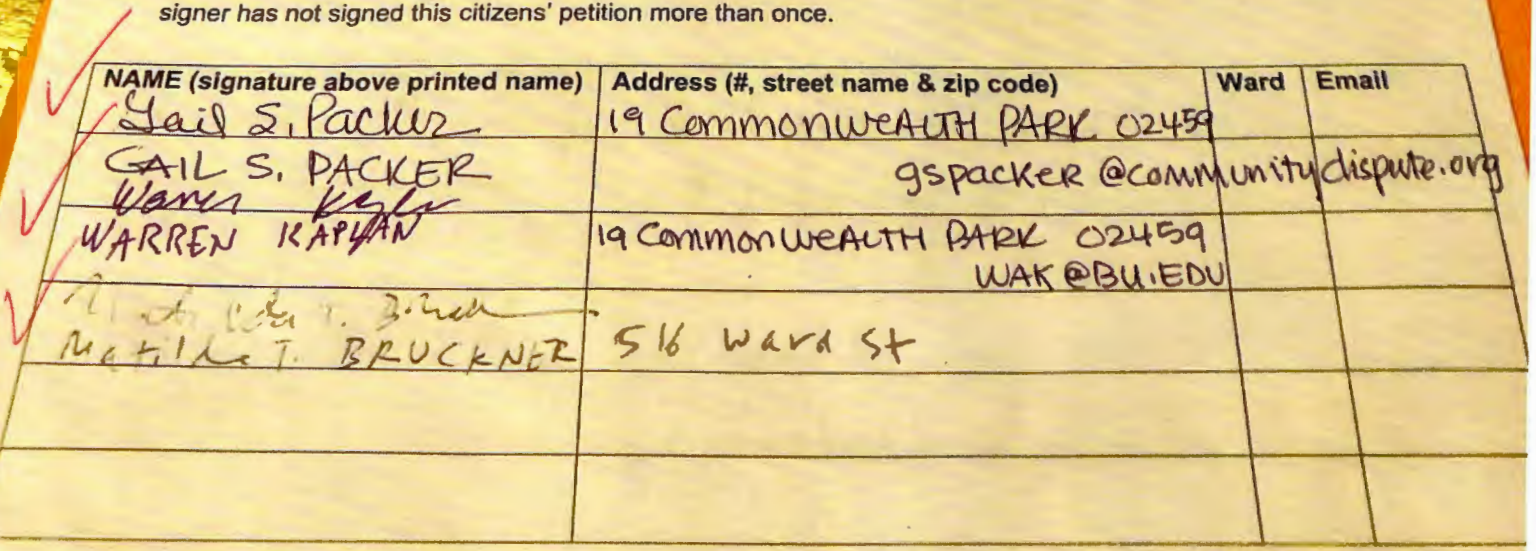 signer has not signed this citizens' petition more than once.
NAME (signature above printed name) Address (#, street name & zip code) Ward Email
Gail S. Packer 19 COMMONWEALTH PARK 02459
GAIL S. PACKER gspacker@communitydispute.org
Warren
WARREN KAPLAN 19 COMMONWEALTH PARK 02459
WAK@BU.EDU
Matilda T. BRUCKNER 516 Ward St